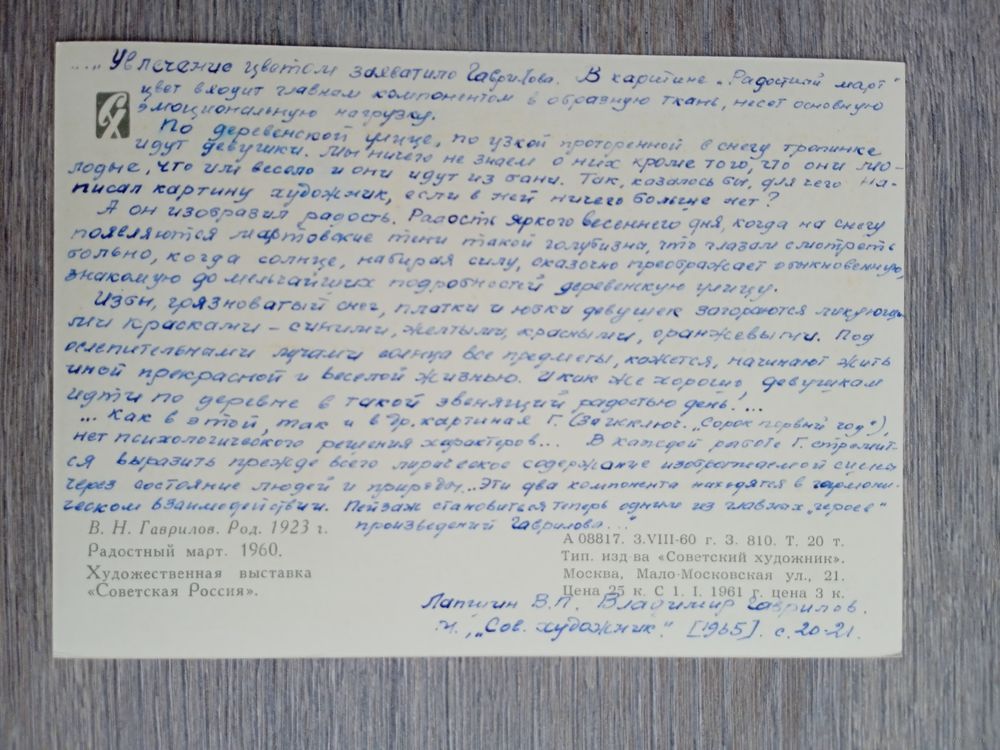 ..... Увлечение цветом захватило Гаврилова. В картине „Радостный март"
цвет входит главным компонентом в образную ткань, несет основную
эмоциональную нагрузку.
По деревенской улице, по узкой проторенной в снегу тропинке
идут девушки. Мы ничего не знаем о них кроме того, что они мо-
лоды, что им весело и они идут из бани. Так, казалось бы, для чего на-
писал картину художник, если в ней ничего больше нет?
А он изобразил радость. Радость яркого весеннего дня, когда на снегу
появляются мартовские тени такой голубизны, что глазам смотреть
больно, когда солнце, набирая силу, сказочно преображает обыкновенную,
знакомую до мельчайших подробностей деревенскую улицу.
Избы, грязноватый снег, платки и юбки девушек загораются ликующи-
ми красками – синими, желтыми, красными, оранжевыми. Под
ослепительными лучами солнца все предметы, кажется, начинают жить
иной прекрасной и веселой жизнью. И как же хорошо девушкам
идти по деревне в такой звенящий радостью день!...
... Как в этой, так и в др. картинах Г. (за исключ. „Сорок первый год"),
нет психологического решения характеров... В каждой работе Г. стремит-
ся выразить прежде всего лирическое содержание изображаемой сцены
через состояние людей и природы... Эти два компонента находятся в гармони-
ческом взаимодействии. Пейзаж становиться теперь одним из главных „героев"
произведений Гаврилова..."
В. Н. Гаврилов. Род. 1923 г.
Радостный март. 1960.
Художественная выставка
«Советская Россия».
А 08817. 3.VIII-60 г. З. 810. Т. 20 т.
Тип. изд-ва «Советский художник».
Москва, Мало-Московская ул., 21.
Цена 25 к. С 1. I. 1961 г. цена 3 к.
Лапшин В.П. Владимир Гаврилов.
М., „Сов. художник". [1965]. с. 20-21.